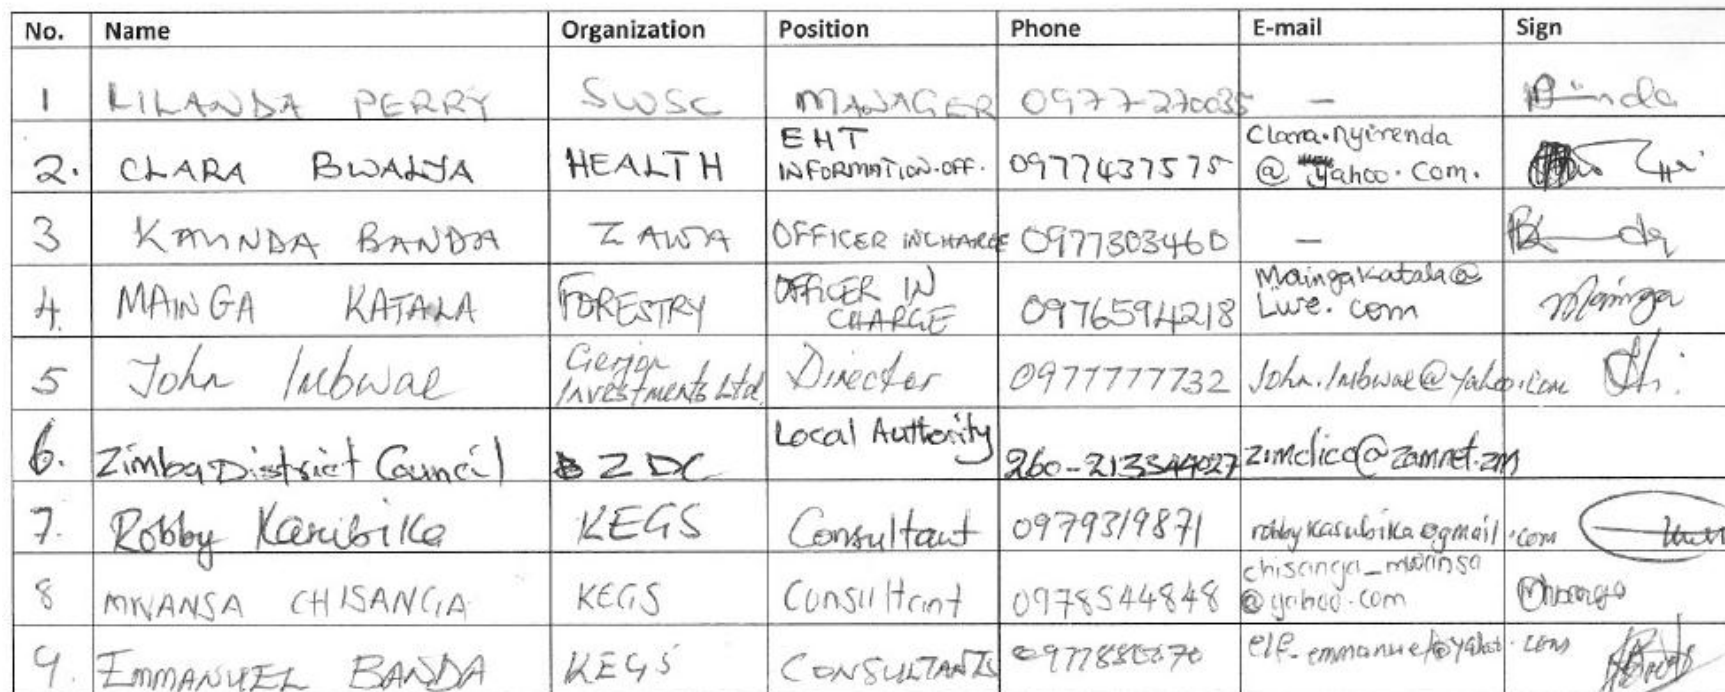 No. Name Organization Position Phone E-mail Sign
1 LILANDA PERRY SWSC MANAGER 0977-270035 –
2. CLARA BWALYA HEALTH EHT INFORMATION.OFF. 0977437575 Clara.nyirenda @ yahoo.com.
3 KAUNDA BANDA ZAWA OFFICER INCHARGE 0977303460 –
4. MAINGA KATALA FORESTRY OFFICER IN CHARGE 0976594218 Maingakatala@ Live.com Mainga
5 John Imbwae Gerjon Investments Ltd. Director 0977777732 John.Imbwae@yahoo.com
6. Zimba District Council ZDC Local Authority 260-213344027 zimdico@zamnet.zm
7. Robby Kasubika KEGS Consultant 0979319871 robbykasubika@gmail.com
8 MWANSA CHISANGA KEGS Consultant 0978544848 chisanga_mwansa @yahoo.com
9. EMMANUEL BANDA KEGS CONSULTANTS elf_emmanuel@yahoo.com